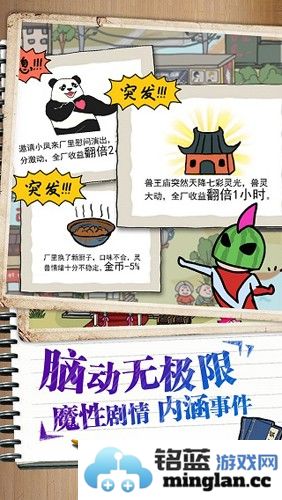 突发!!!
邀请小凤来厂里慰问演出,
分激动,全厂收益翻倍2
突发!!!
兽王庙突然天降七彩灵光,兽灵
大动,全厂收益翻倍1小时。
突发!!!
厂里换了新厨子,口味不合,灵
兽情绪十分不稳定,金币-5%
脑动无极限
魔性剧情 内涵事件
铭蓝游戏网
minglan.cc